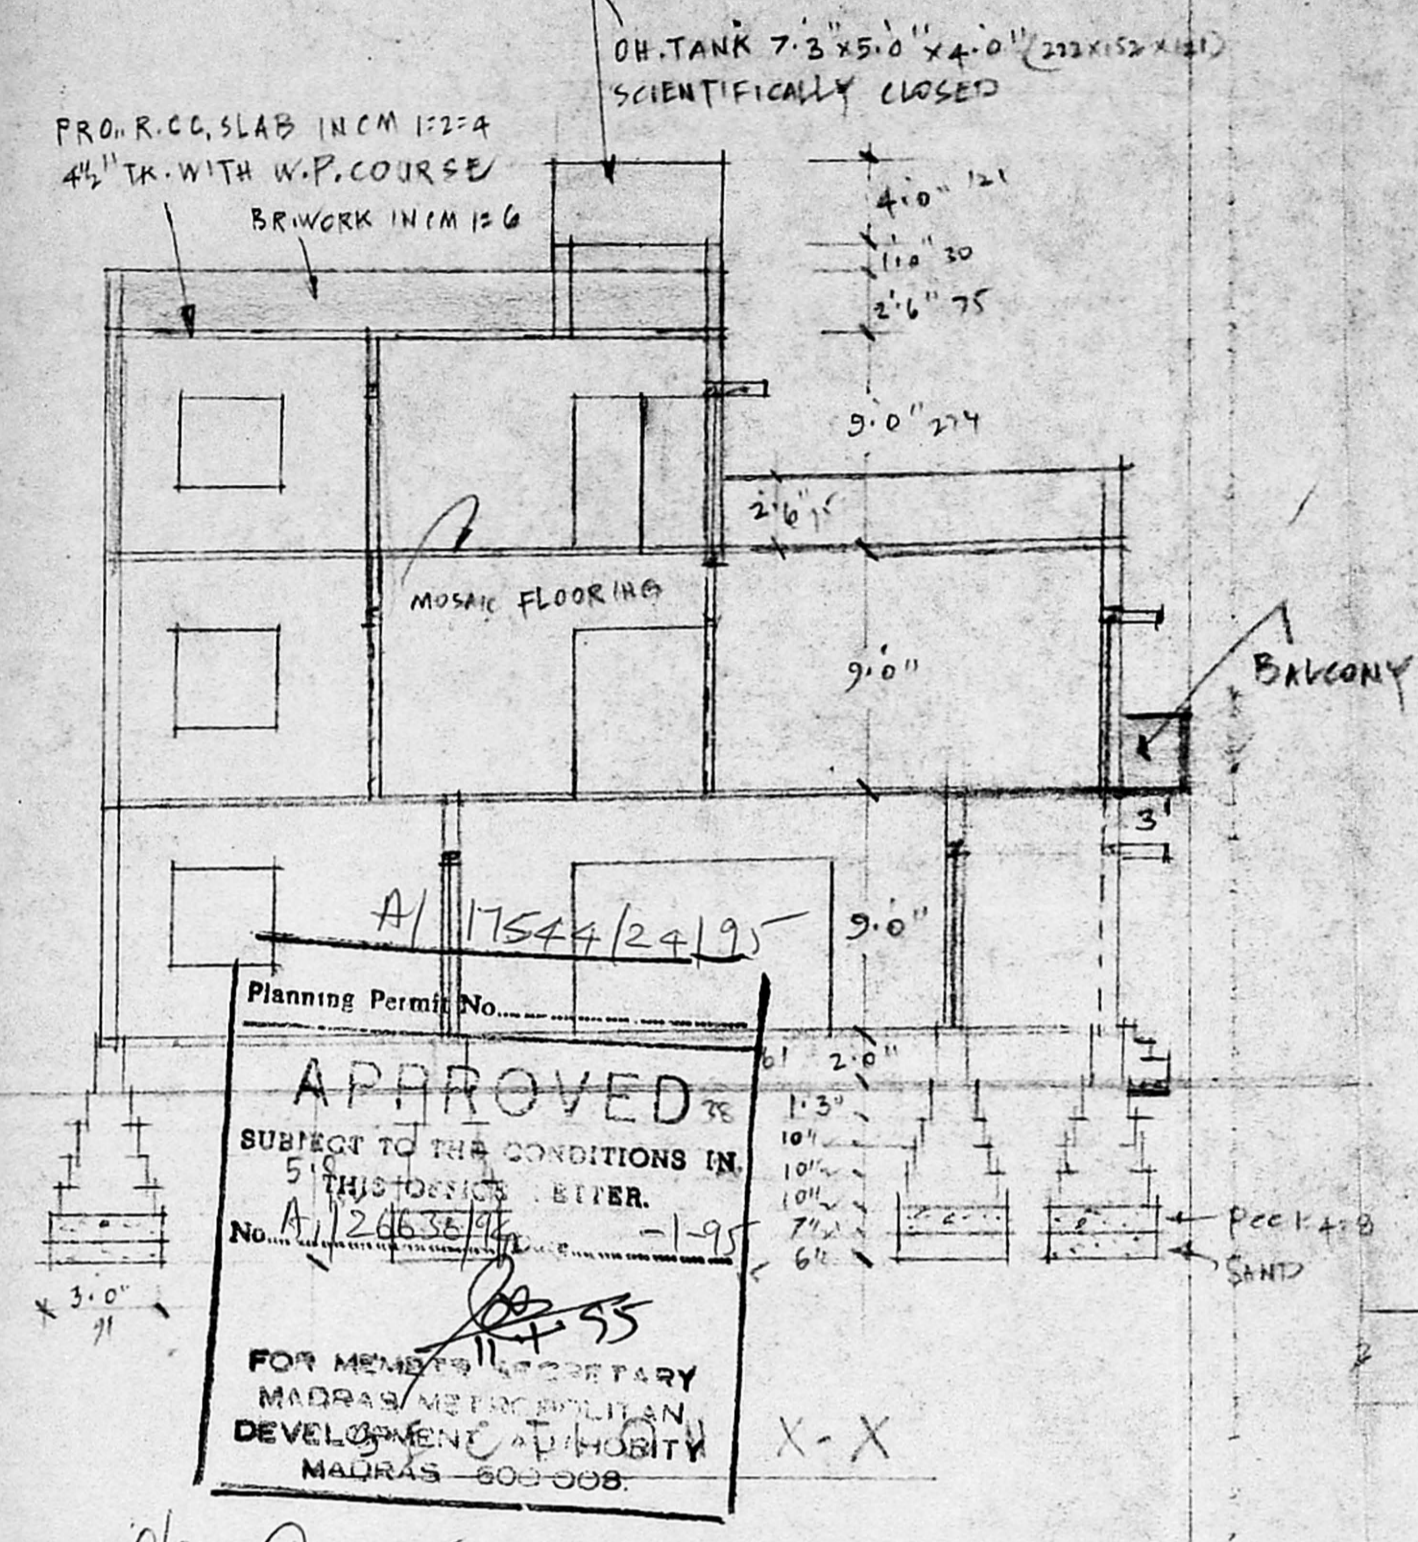 OH.TANK 7'.3"x5'.0"x4'.0"(222x152x121)
SCIENTIFICALLY CLOSED
PRO.. R.CC, SLAB IN CM 1:2:4
4½" TK. WITH W.P. COURSE
BR.WORK IN CM 1:6
4'.0" 121
1'.0" 30
2'.6" 75
9'.0" 274
2'.6" 75
MOSAIC FLOORING
9'.0"
BALCONY
3'
9'.0"
A/ 17544/24/95
Planning Permit No.
61 2'.0"
APPROVED
38 1'.3"
SUBJECT TO THE CONDITIONS IN
10"
THIS OFFICE LETTER.
10"
10"
No. A1/26636/94 Date -1-95
7"
6"
PCC 1:4:8
SAND
3'.0"
91
11.4.95
FOR MEMBER SECRETARY
MADRAS METROPOLITAN
DEVELOPMENT AUTHORITY
MADRAS 600 008.
SECTION X-X